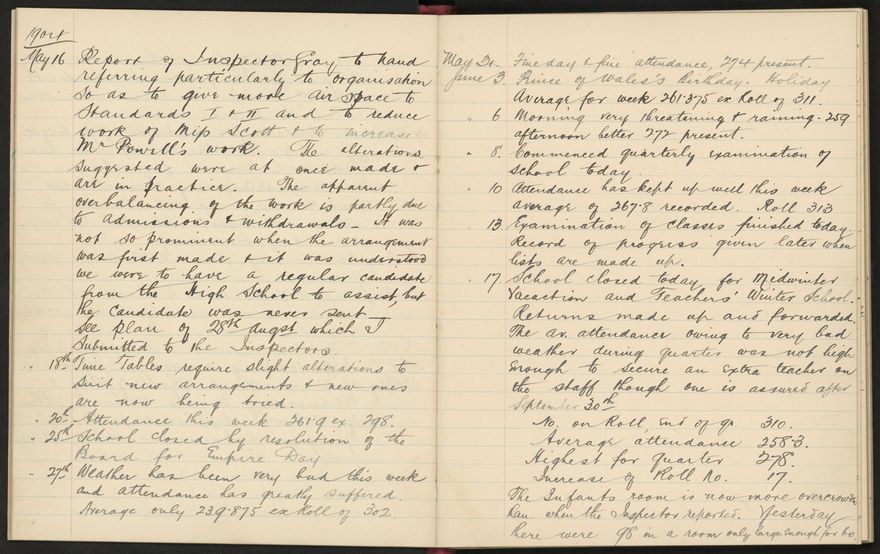 1904
May 16 Report of Inspector Gray to hand
referring particularly to organisation
so as to give more air space to
Standards I & II and to reduce
work of Miss Scott & to increase
Mr Powell's work. The alterations
suggested were at once made &
are in practice. The apparent
overbalancing of the work is partly due
to admissions & withdrawals — It was
not so prominent when the arrangement
was first made & it was understood
we were to have a regular candidate
from the High School to assist but
the candidate was never sent —
See plan of 28th Augst which I
submitted to the Inspectors.
" 18th Time Tables require slight alterations to
suit new arrangements & new ones
are now being tried.
" 20th Attendance this week 261.9 ex. 298.
" 25th School closed by resolution of the
Board for Empire Day
" 27th Weather has been very bad this week
and attendance has greatly suffered.
Average only 239.875 ex Roll of 302.
May 30. Fine day & fine attendance, 274 present.
June 3. Prince of Wales's Birthday. Holiday
Average for week 261.375 ex Roll of 311.
" 6 Morning very threatening & raining - 259
afternoon better 272 present.
" 8. Commenced quarterly examination of
School today.
" 10 Attendance has kept up well this week
average of 267.8 recorded. Roll 313
13 Examination of classes finished today.
Record of progress given later when
lists are made up.
" 17 School closed today for Midwinter
Vacation and Teachers' Winter School.
Returns made up and forwarded.
The av. attendance owing to very bad
weather during quarter was not high
enough to secure an extra teacher on
the staff though one is assured after
September 30th
No. on Roll, end of qr. 310.
Average attendance 258.3.
Highest for quarter 278.
Increase of Roll No. 17.
The Infants room is now more overcrowded
than when the Inspector reported. Yesterday
there were 98 in a room only large enough for 60.